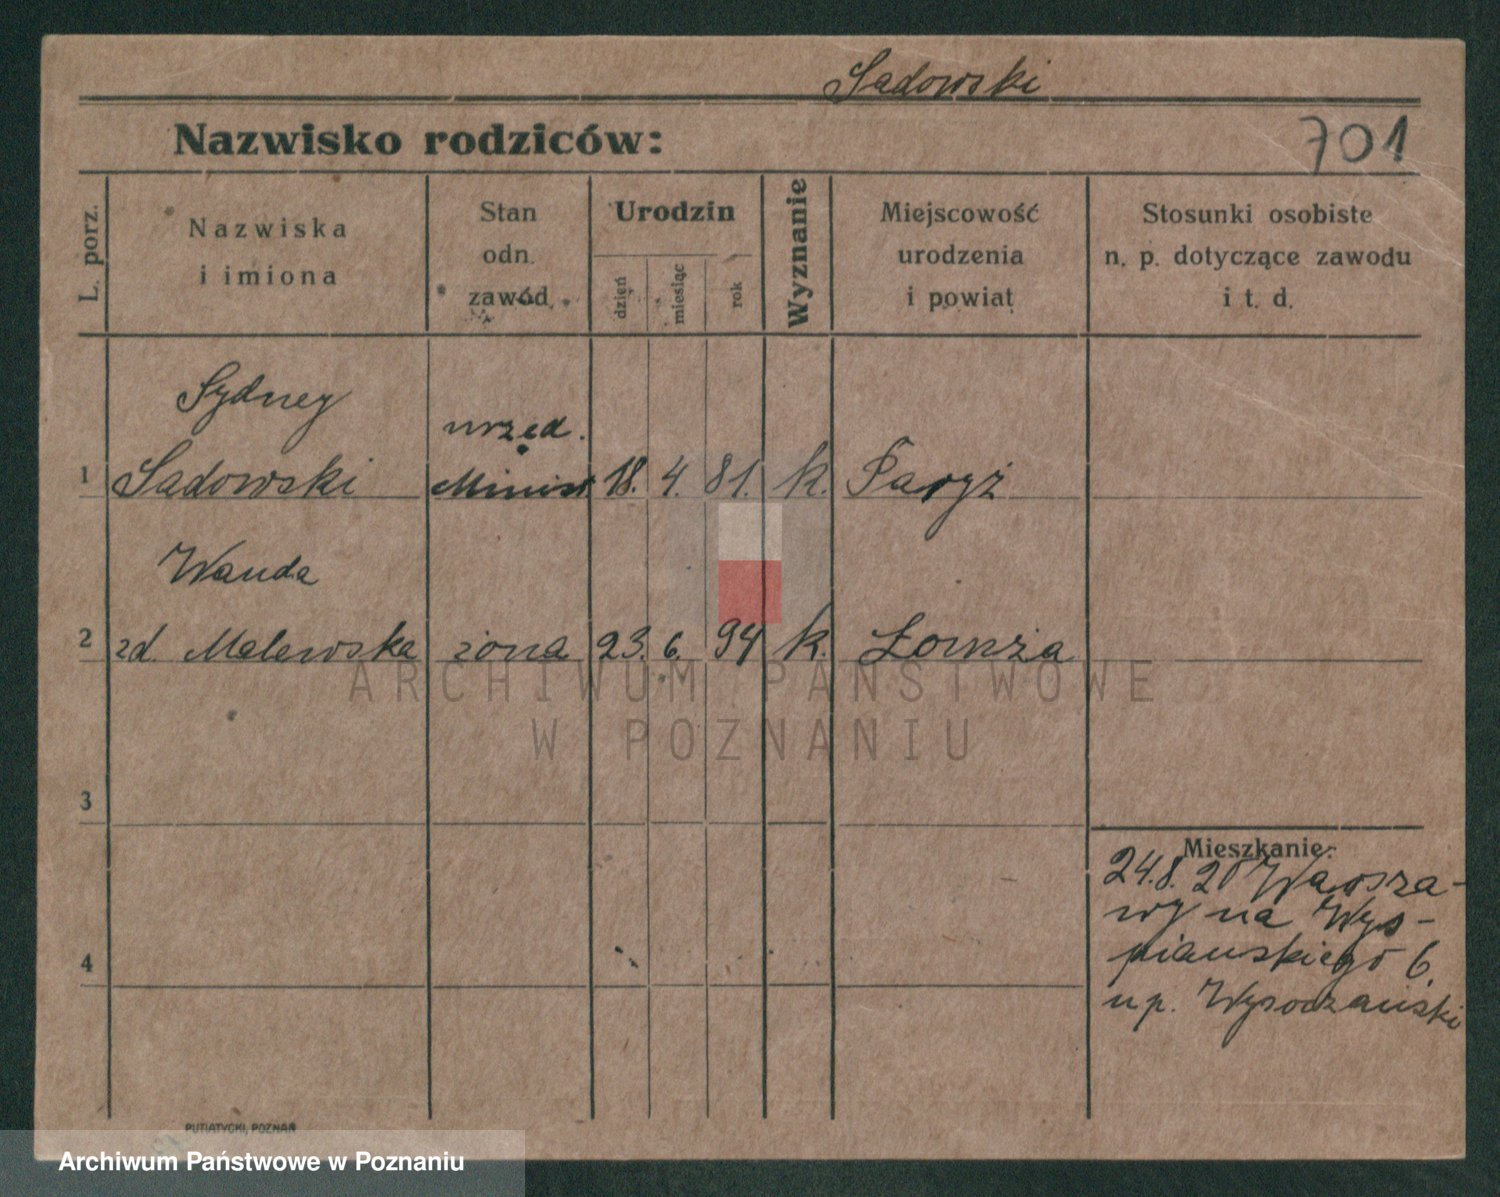 Sadowski
Nazwisko rodziców:
701
L. porz.
Nazwiska
i imiona
Stan
odn.
zawód
Urodzin
dzień
miesiąc
rok
Wyznanie
Miejscowość
urodzenia
i powiat
Stosunki osobiste
n. p. dotyczące zawodu
i t. d.
1
Sydney
Sadowski
urzęd.
Minist
18. 4. 81. k. Paryż
2
Wanda
zd. Malewska
żona 23. 6. 94 k. Łomża
3
4
Mieszkanie:
24.8.20 Warsza-
wy na Wys-
piańskiego 6.
u p. Wysoczański
PUTIATYCKI, POZNAŃ
ARCHIWUM PAŃSTWOWE
W POZNANIU
Archiwum Państwowe w Poznaniu